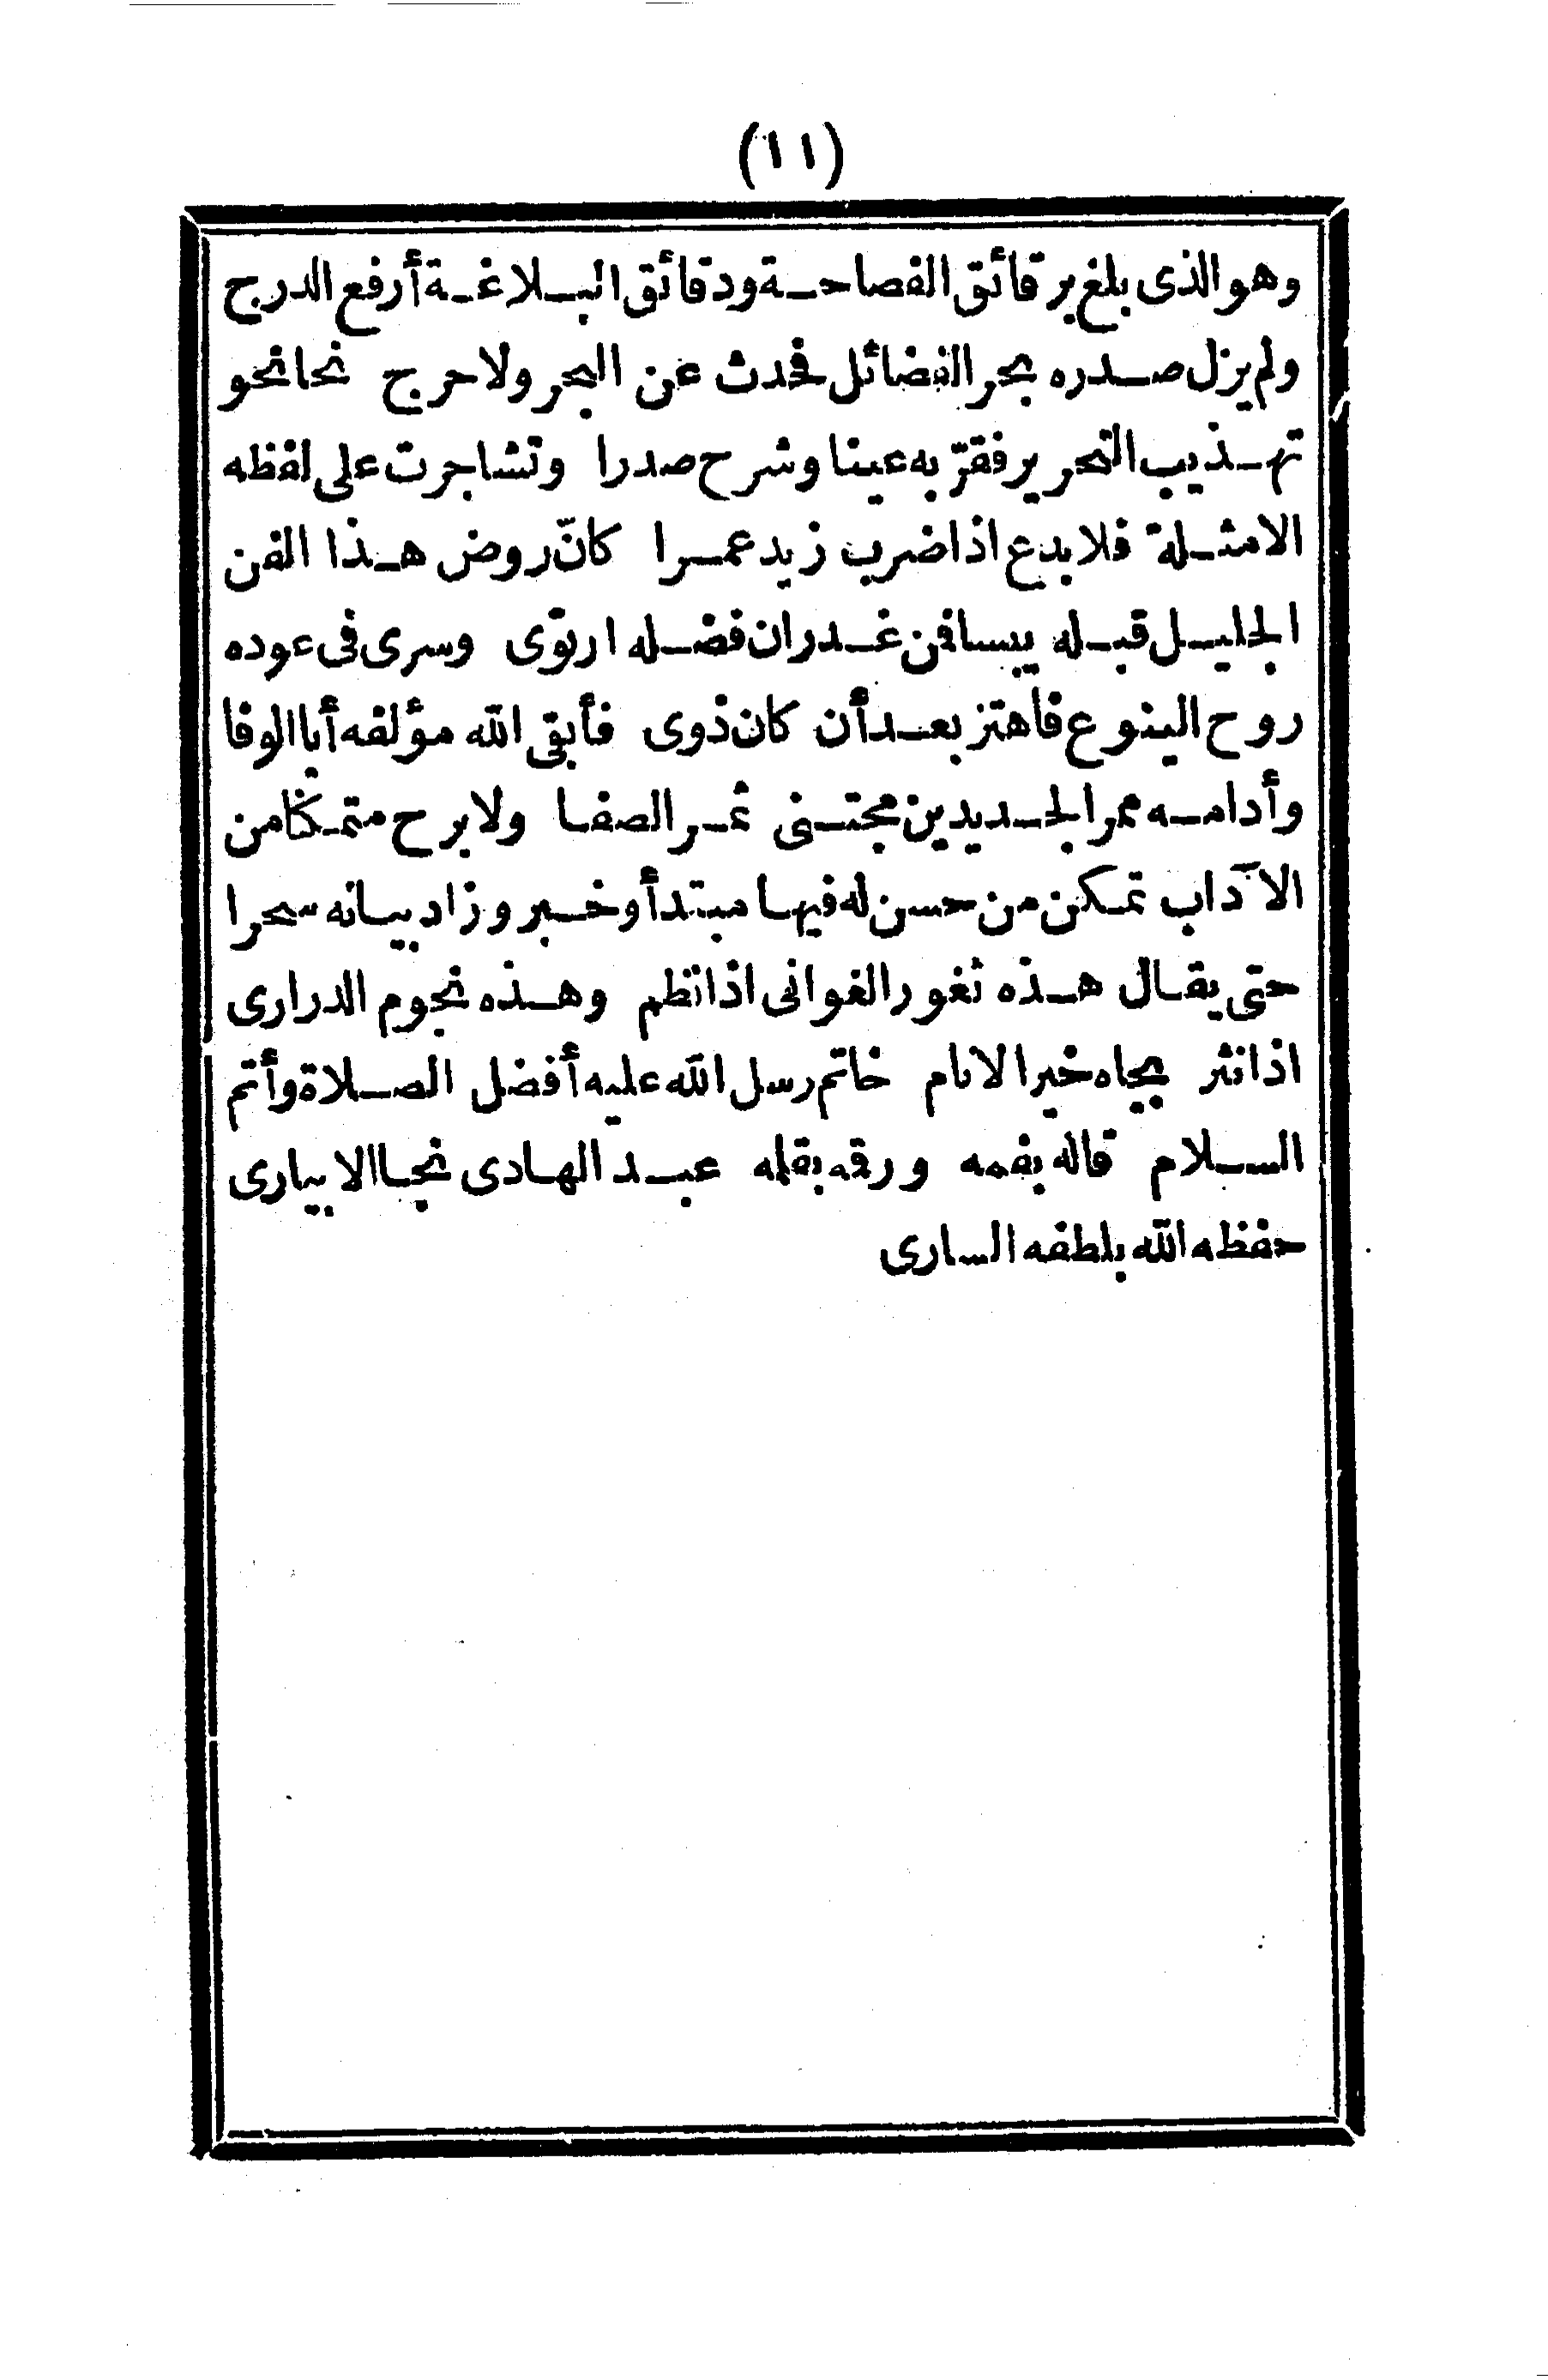 (١١)
وهو الذى بلغ برقائق الفصاحة ودقائق البلاغة أرفع الدرج
ولم يزل صدره بحر الفضائل فحدث عن البحر ولا حرج نحا نحو
تهذيب التحرير فقرّ به عينا وشرح صدرا وتشاجرت على لفظه
الامثلة فلا بدع اذا ضرب زيد عمرا كانّ روض هذا الفن
الجليل قبله يبسا فمن غدران فضله ارتوى وسرى فى عوده
روح الينوع فاهتز بعد أن كان ذوى فأبقى الله مؤلفه أبا الوفا
وأدامه ممر الجديدين مجتنى ثمر الصفا ولا برح متمكنا من
الآداب تمكن من حسن له فيها مبتدأ وخبر وزاد بيانه سحرا
حتى يقال هذه ثغور الغوانى اذا نظم وهذه نجوم الدرارى
اذا نثر بجاه خير الانام خاتم رسل الله عليه أفضل الصلاة وأتم
السلام قاله بفمه ورقمه بقلمه عبد الهادى نجا الابيارى
حفظه الله بلطفه السارى